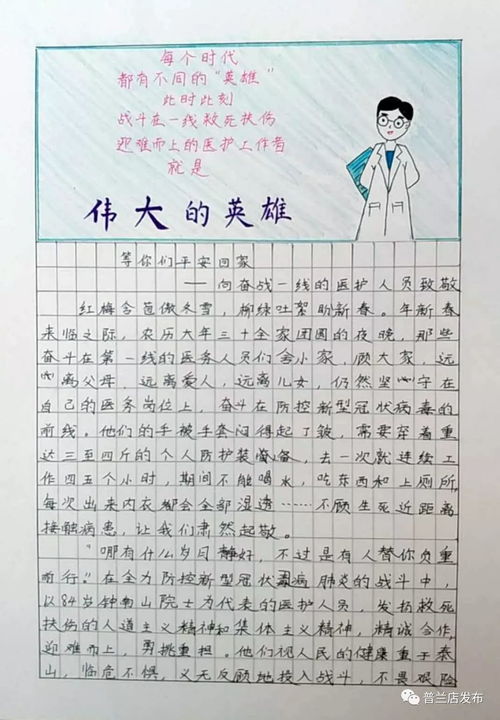 每个时代
都有不同的"英雄"
此时此刻
战斗在一线救死扶伤
迎难而上的医护工作者
就是
伟大的英雄
等你们平安回家
——向奋战一线的医护人员致敬
红梅含苞傲冬雪，柳绿吐絮盼新春。年新春
来临之际，农历大年三十全家团圆的夜晚，那些
奋斗在第一线的医务人员们舍小家，顾大家，远
离父母，远离爱人，远离儿女，仍然坚守在
自己的医务岗位上，奋斗在防控新型冠状病毒的
前线。他们的手被手套闷得起了皱，需要穿着重
达三至四斤的个人防护装备，去一次就连续工
作四五个小时，期间不能喝水，吃东西和上厕所，
每次出来内衣都会全部湿透……不顾生死近距离
接触病患，让我们肃然起敬。
"哪有什么岁月静好，不过是有人替你负重
前行"在全为防控新型冠状病毒肺炎的战斗中，
以84岁钟南山院士为代表的医护人员，发扬救死
扶伤的人道主义精神和集体主义精神，精诚合作，
迎难而上，勇挑重担。他们视人民的健康重于泰
山，临危不惧，义无反顾地投入战斗，不畏艰险
普兰店发布